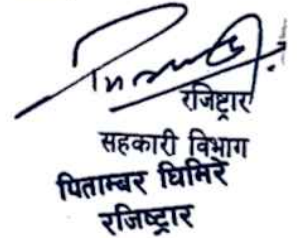 रजिष्ट्रार
सहकारी विभाग
पिताम्बर घिमिरे
रजिष्ट्रार